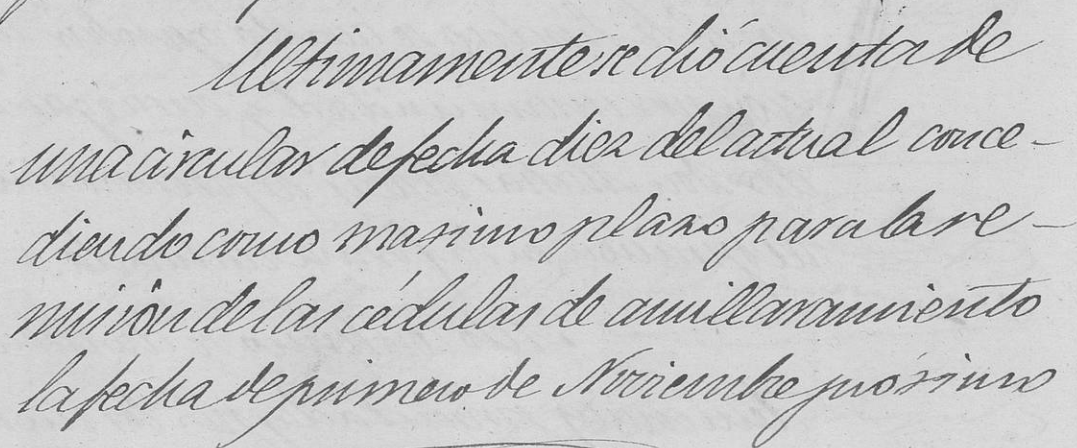 Ultimamente se dió cuenta de
una circular de fecha diez del actual conce-
diendo como maximo plazo para la re-
misión de las cédulas de amillaramiento
la fecha de primero de Noviembre próximo